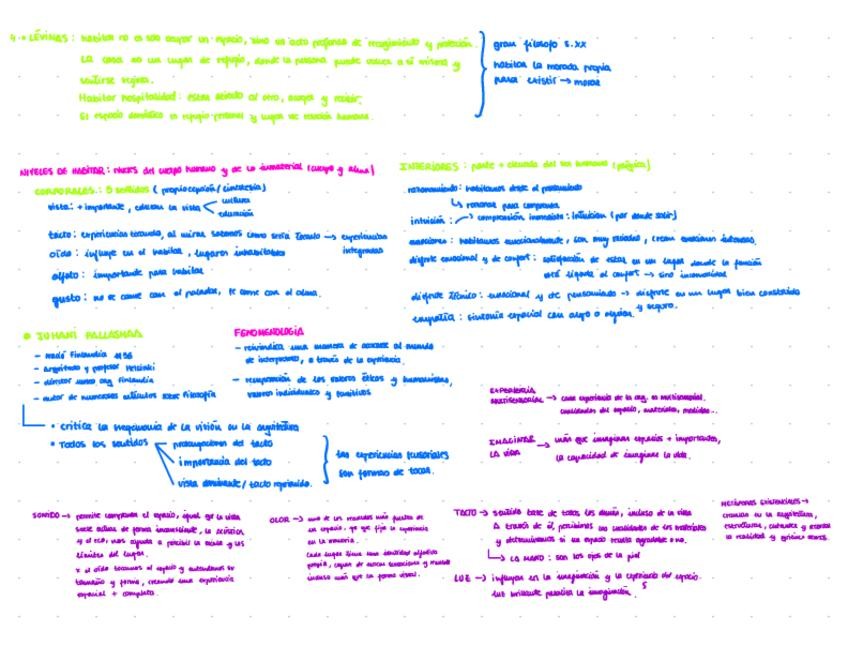 4. LÉVINAS: habitar no es solo ocupar un espacio, sino un acto profundo de recogimiento y protección.
La casa es un lugar de refugio, donde la persona puede volver a sí misma y
sentirse segura.
Habitar hospitalidad: estar abierto al otro, acoger y recibir.
El espacio doméstico es refugio personal y lugar de relación humana.
gran filósofo s.XX
habitar la morada propia
para existir → morar
NIVELES DE HABITAR: niveles del cuerpo humano y de lo inmaterial (cuerpo y alma)
CORPORALES: 5 sentidos (propiocepción / cinestesia)
vista: + importante, educan la vista
cultura
educación
tacto: experiencias tocando, al mirar sabemos como sería tocarlo → experiencias
integradas
oído: influye en el habitar, lugares inhabitables
olfato: importante para habitar
gusto: no se come con el paladar, se come con el alma.
INTERIORES: parte + elevada del ser humano (psíquica)
razonamiento: habitamos desde el pensamiento
↳ razonar para comprender
intuición: → comprensión inmediata: intuición (por donde salir)
emociones: habitamos emocionalmente, son muy variadas, crean emociones intensas.
disfrute emocional y de confort: satisfacción de estar en un lugar donde la función
está ligada al confort → sino incomodidad
disfrute técnico: emocional y de pensamiento → disfrute en un lugar bien construido
y seguro.
empatía: sintonía espacial con algo o alguien.
JUHANI PALLASMAA
- nació Finlandia 1936
- arquitecto y profesor Helsinki
- director museo arq Finlandia
- autor de numerosos artículos sobre filosofía
• critica la hegemonía de la visión en la arquitectura
• Todos los sentidos
prolongaciones del tacto
importancia del tacto
vista dominante / tacto reprimido.
las experiencias sensoriales
son formas de tocar.
FENOMENOLOGÍA
- reivindica una manera de acercarse al mundo
de interpretarlo, a través de la experiencia.
- recuperación de los valores éticos y humanismo,
valores individuales y positivos
EXPERIENCIA
MULTISENSORIAL → cada experiencia de la arq. es multisensorial.
cualidades del espacio, materiales, medidas..
IMAGINAR
LA VIDA → más que imaginar espacios + importante,
la capacidad de imaginar la vida.
SONIDO → permite comprender el espacio, igual que la vista
suele actuar de forma inconsciente, la acústica
y el eco, nos ayuda a percibir la escala y los
límites del lugar.
x el oído tocamos el espacio y entendemos su
tamaño y forma, creando una experiencia
espacial + completa.
OLOR → uno de los recuerdos más fuertes de
un espacio, ya que fija la experiencia
en la memoria.
Cada lugar tiene una identidad olfativa
propia, capaz de evocar sensaciones y
incluso más que la forma visual.
TACTO → sentido base de todos los demás, incluso de la vista
A través de él, percibimos las cualidades de los materiales
y determinamos si un espacio resulta agradable o no.
↳ LA MANO: son los ojos de la piel
LUZ → influyen en la imaginación y la experiencia del espacio.
luz brillante paraliza la imaginación.
METÁFORAS EXISTENCIALES →
creadas en la arquitectura,
estructuran,
la realidad y